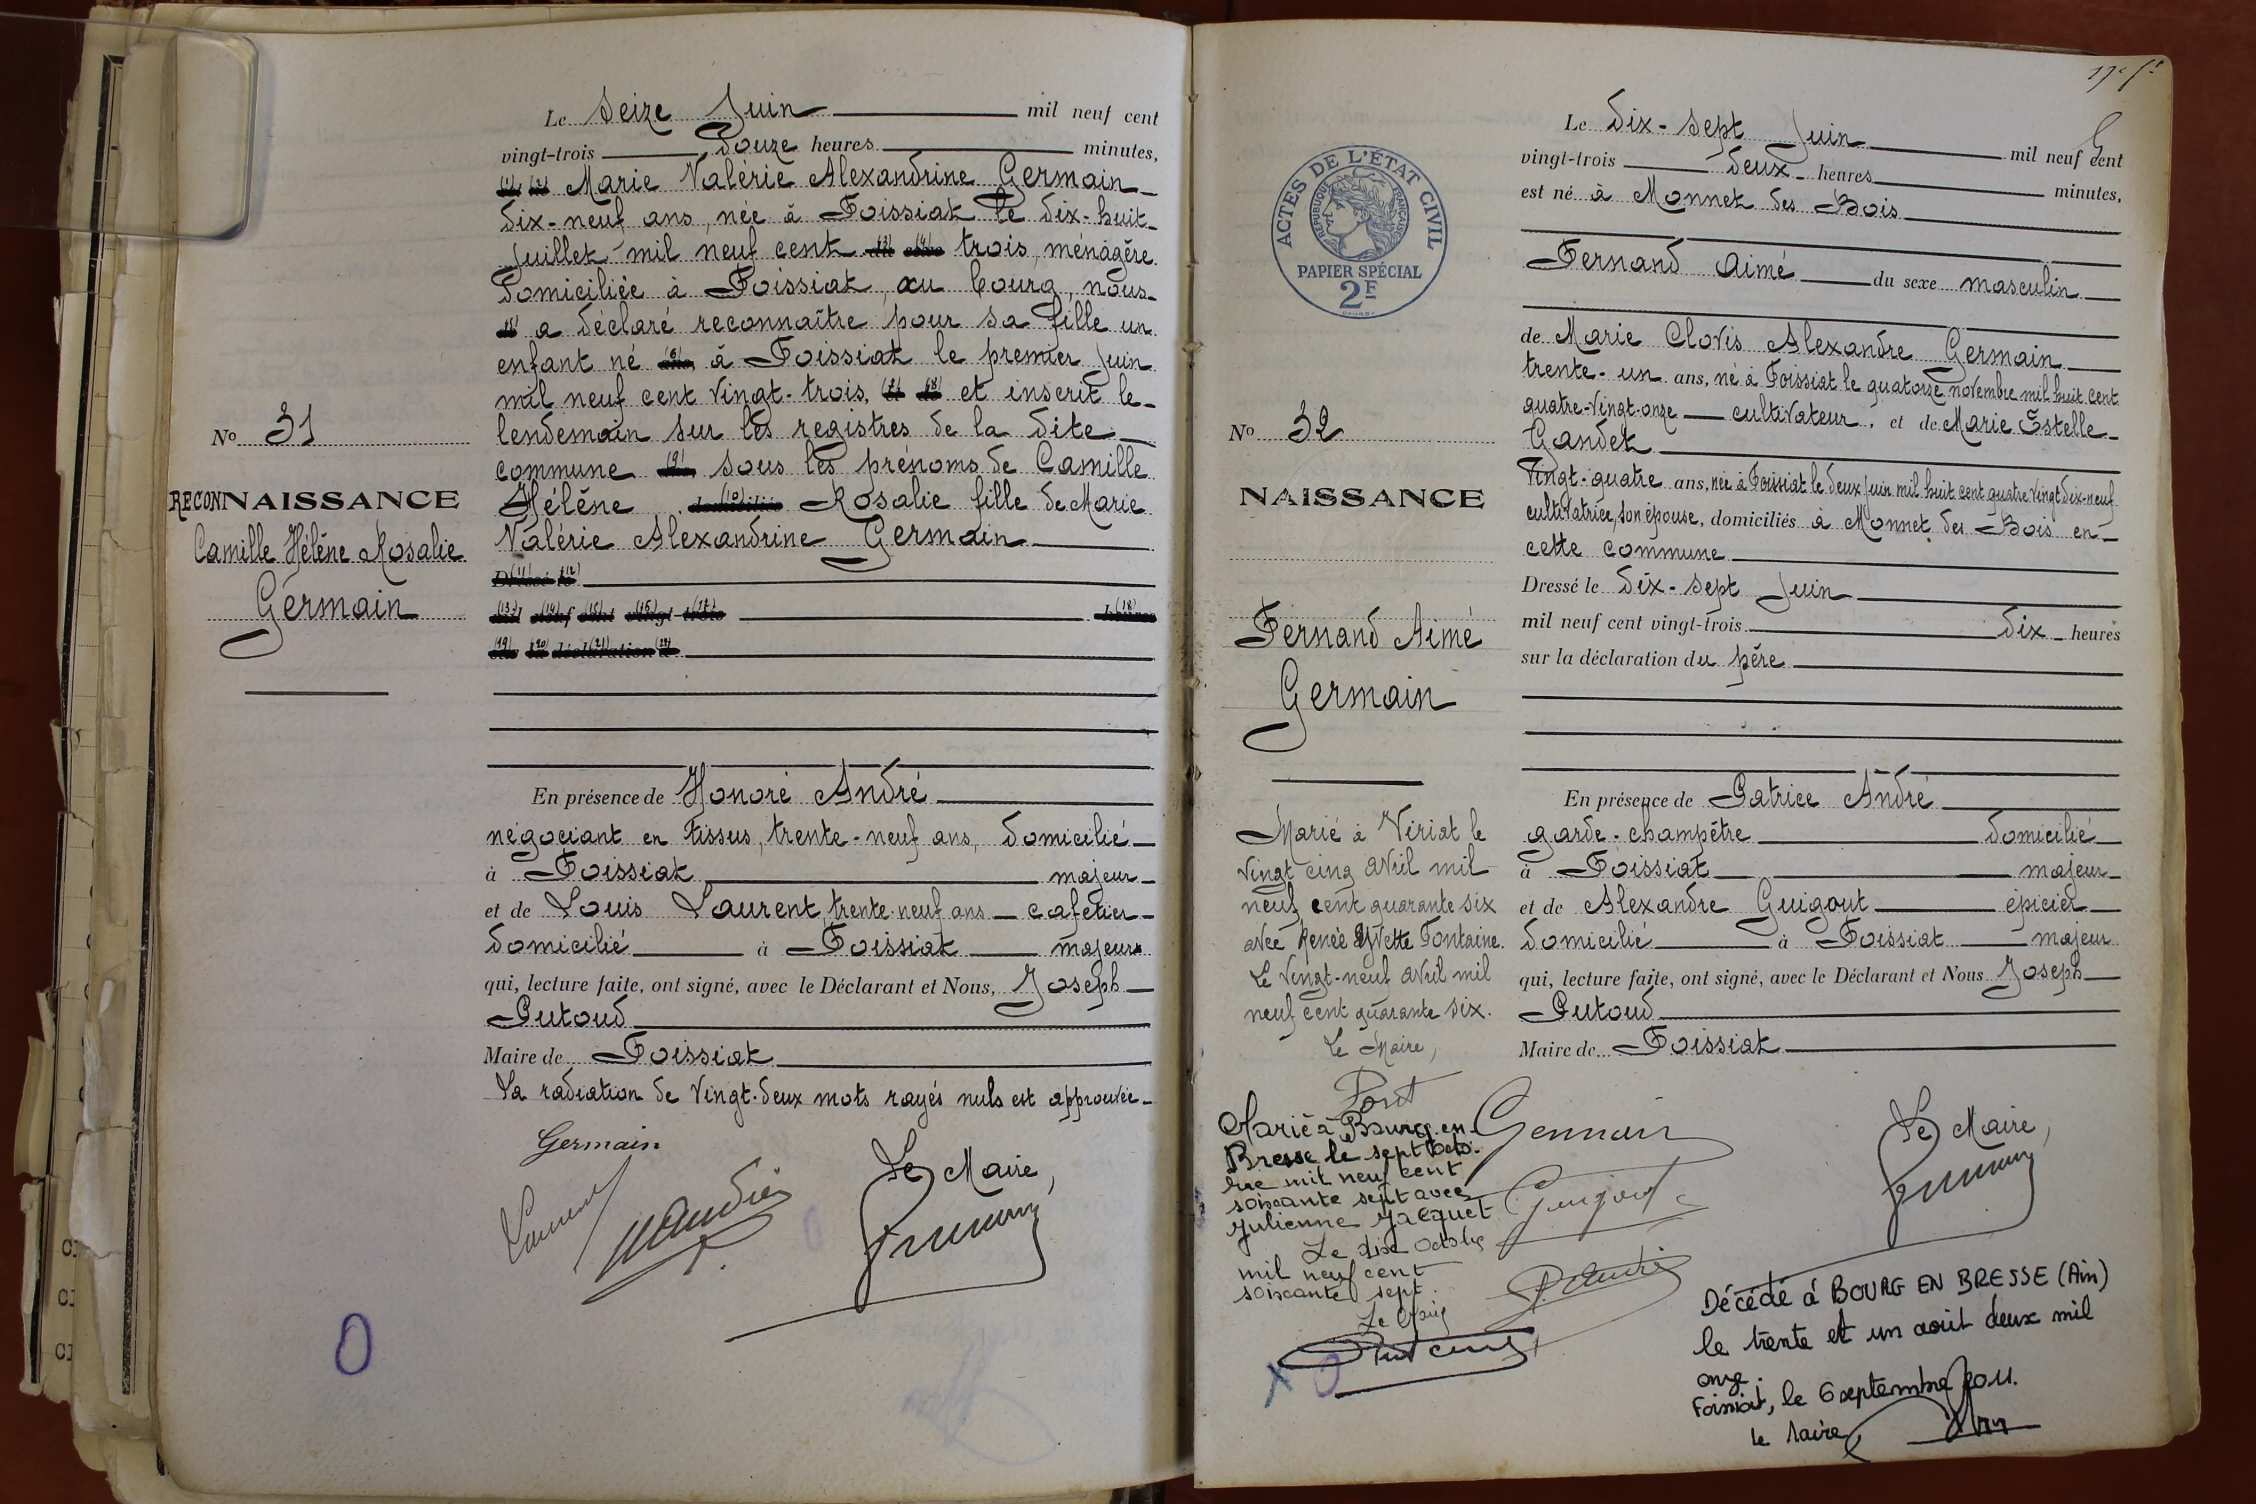 Le Seize Juin mil neuf cent
vingt-trois Douze heures minutes,
(1) (2) Marie Valérie Alexandrine Germain
dix-neuf ans, née à Foissiat le dix-huit
Juillet mil neuf cent (3) (4) trois, ménagère
domiciliée à Foissiat, au bourg, nous
(5) a déclaré reconnaître pour sa fille un
enfant né (6) à Foissiat le premier Juin
mil neuf cent vingt-trois, (7) (8) et inscrit le
lendemain sur les registres de la dite
commune (9) sous les prénoms de Camille
Hélène (10) domiciliés Rosalie fille de Marie
Valérie Alexandrine Germain
Dressé le (11) (12)
(13) mil (14) neuf (15) cent (16) vingt-trois (17) heures (18)
(19) (20) déclaration (21) (22)
No 31
RECONNAISSANCE
Camille Hélène Rosalie
Germain
En présence de Honoré André
négociant en tissus, trente-neuf ans, domicilié
à Foissiat majeur
et de Louis Laurent, trente-neuf ans cafetier
domicilié à Foissiat majeur
qui, lecture faite, ont signé, avec le Déclarant et Nous, Joseph
Putoud
Maire de Foissiat
La radiation de vingt-deux mots rayés nuls est approuvée
Germain
Laurent
H André
Le Maire,
17e ft
ACTES DE L'ÉTAT CIVIL
RÉPUBLIQUE FRANÇAISE
PAPIER SPÉCIAL
2F
Le Dix-sept Juin mil neuf cent
vingt-trois deux heures minutes,
est né à Monnet des Bois
Fernand Aimé du sexe masculin
de Marie Clovis Alexandre Germain
trente-un ans, né à Foissiat le quatorze novembre mil huit cent
quatre-vingt-onze cultivateur, et de Marie Estelle
Gandet
vingt-quatre ans, née à Foissiat le deux Juin mil huit cent quatre vingt dix-neuf
cultivatrice, son épouse, domiciliés à Monnet des Bois en
cette commune
Dressé le dix-sept Juin
mil neuf cent vingt-trois dix heures
sur la déclaration du père
No 32
NAISSANCE
Fernand Aimé
Germain
En présence de Patrice André
garde-champêtre domicilié
à Foissiat majeur
et de Alexandre Guigout épicier
domicilié à Foissiat majeur
qui, lecture faite, ont signé, avec le Déclarant et Nous Joseph
Putoud
Maire de Foissiat
Marié à Viriat le
vingt cinq avril mil
neuf cent quarante six
avec Renée Yvette Fontaine.
Le vingt-neuf avril mil
neuf cent quarante six.
Le Maire,
Marié à Bourg-en-
Bresse le sept octo-
bre mil neuf cent
soixante sept avec
Julienne Jacquet
Le dix octobre
mil neuf cent
soixante sept.
Le Maire
Germain
Guigout
P. André
Le Maire,
Décédé à BOURG EN BRESSE (Ain)
le trente et un août deux mil
onze.
Foissiat, le 6 septembre 2011.
Le Maire